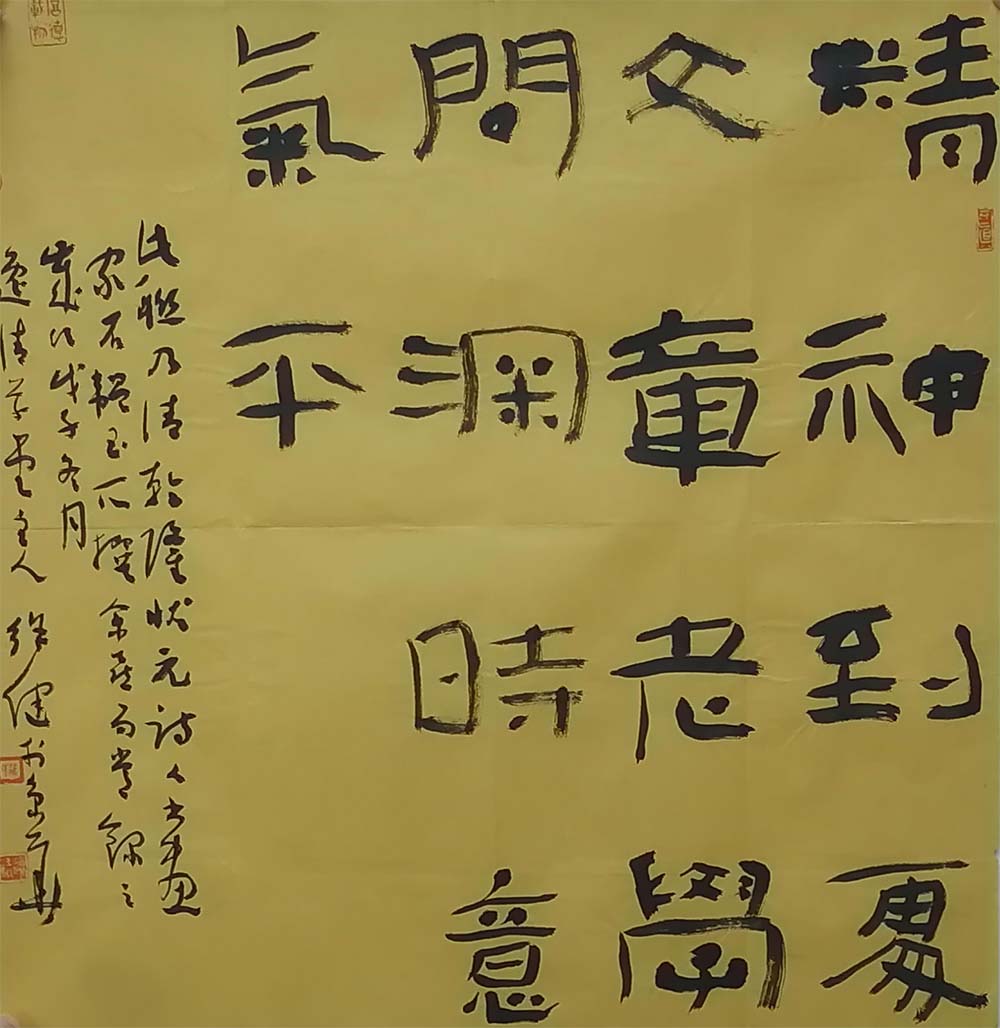 精神到處
文章老學
問深時意
氣平
此聯乃清乾隆狀元詩人書畫
家石韞玉所撰余喜而常錄之
歲次戊子冬月
逸清草堂主人徐健於京華
厚德載物